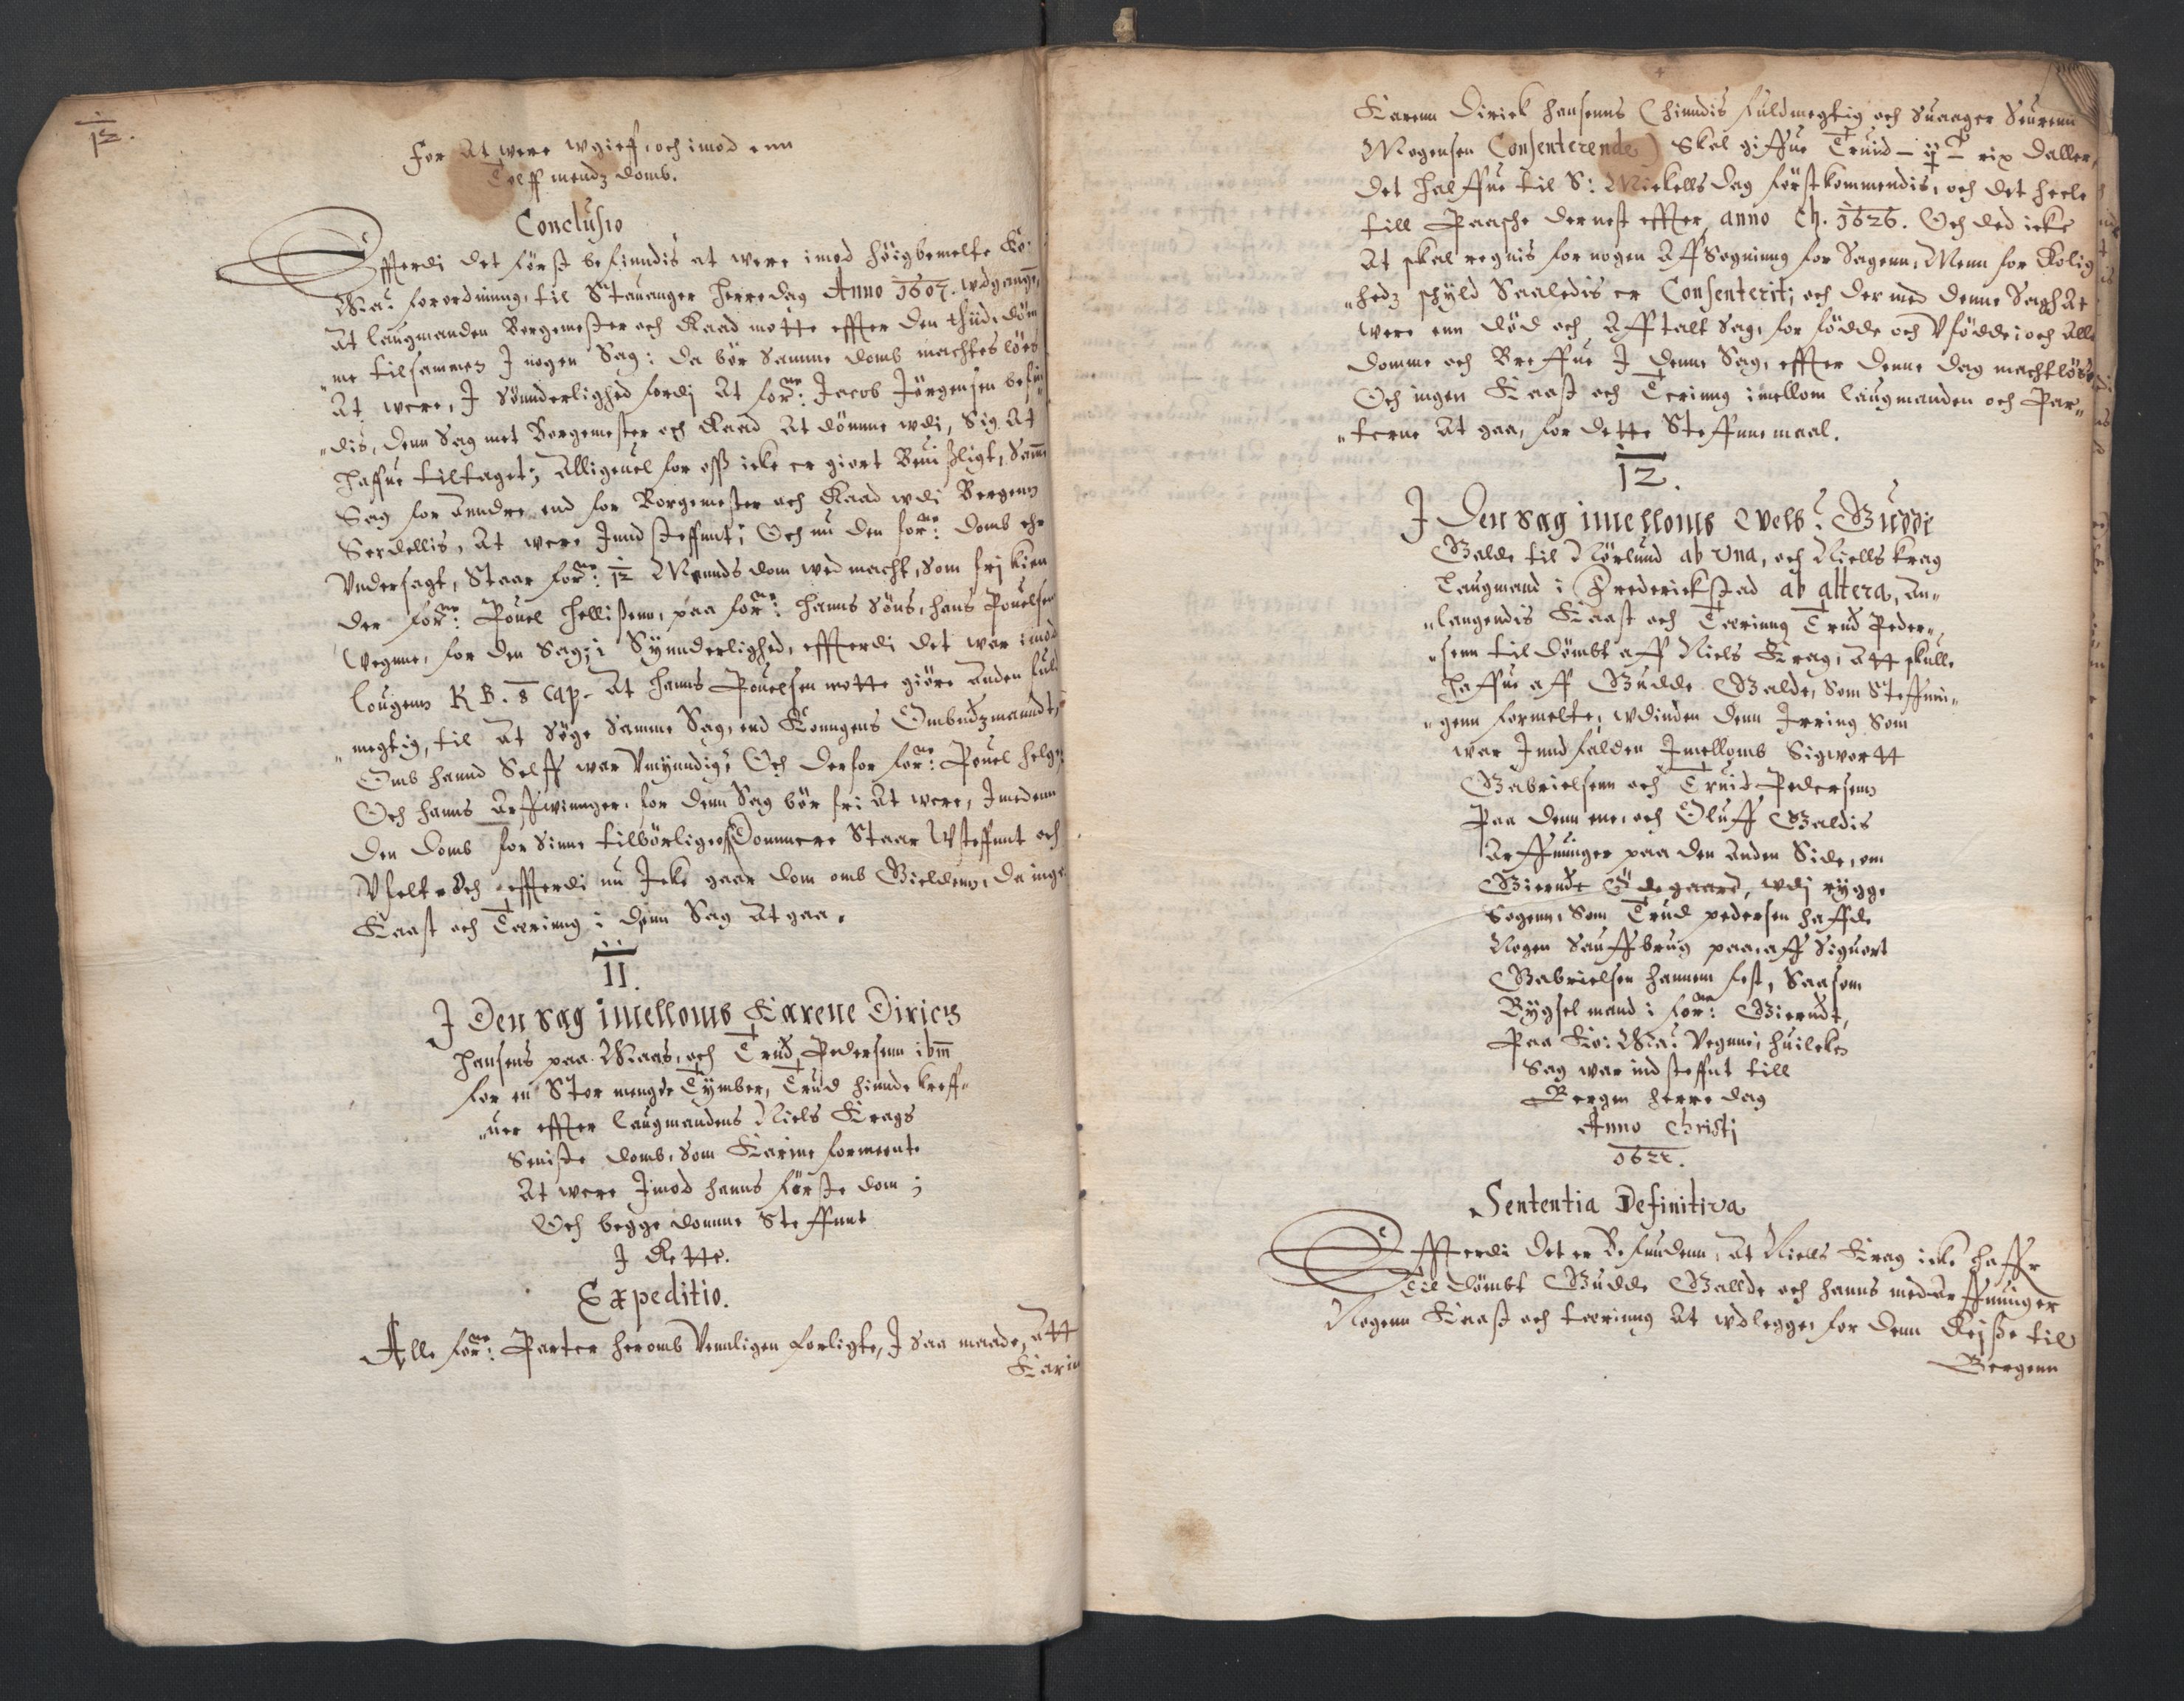 12.
for at were wgieff, och imod enn
Tolff mendz domb.
Conclusio
Effterdi det først befinndis at were imod høigbemelte Ko:
Ma: forordning, til Stauanger herredag Anno 1607. wdgangen,
At laugmanden Borgemester och Raad motte effter den thiid, døm
"me tilsammen J nogen Sag: da bør samme domb machtesløes
At were, J sønderlighed fordj at for:ne Jacob Jørgensen befin
"dis, denn Sag met Borgemester och Raad at dømme wdi, sig at
haffue tiltaget; Alligeuel for oss icke er giort beuissligt, samme
Sag for anndre end for Borgemester och Raad wdi Bergenn
Serdellis, at were Jnnd steffnnt; Och nu den for:ne domb ehr
Vndersagt, Staar for:ne 12 Mennds dom wed macht, som frj kien
der for:ne Pouel hellissenn, paa for:ne hanns Søns, hans Pouelsen
Wegnne, for den Sag; i Synnderlighed, effterdi det war imod
lougenn K B. 8 Cap. At hanns Pouelsen motte giøre anden fuld
"megtig, til at søge samme Sag, end Konngens Ombudzmanndt,
Omb hannd Selff war Vmynndig; Och derfor for:ne Pouel helge:
Och hanns Arffwinger, for denn Sag bør fri at were, Jmedenn
den domb for Sinne tilbørlige Dommere Staar Vsteffnnt och
Vfelt: Och effterdi nu Jcke gaar dom omb Gielden, da inge
Kaast och Tæring i denn Sag at gaa.
11.
J Den sag imelloms Karene Dirics
hansens paa Maas, och Trud Pedersenn ibm
for en Stor mengde Tymber, Trud hinnde kreff
"uer effter laugmandens Niels Krags
Seniste domb, som Karine formeente
At were Jmod hanns første dom;
Och begge domme Steffnnt
J Rette.
Expeditio.
Alle for:ne Parter heromb Vennligen forligte, J saa maade, Att
Karin
Karenn Dirick hansenns (hinndis fuldmegtig och Suaager Seurenn
Mogensen Consenterende) Skal giffue Truid – – rix daller,
det halffue til S: Mickells dag førstkommendis, och det heele
till Paasche dernest effter anno Ch. 1626. Och ded icke
At skal regnis for nogen Affsagning for Sagenn, Menn for Rolig
"hedz skyld Saaledis er Consenterit; och dermed denne Sagh at
were enn død och Afftalt Sag, for fødde och Vfødde; och Alle
domme och Breffue J denne Sag, effter denne dag machtløse
Och ingen Kaast och Tering imellom laugmanden och Par"
"terne At gaa, for dette Steffnnemaal.
12.
J Den sag imelloms velb: Budde
Galde til Nørlund ab una, och Niells krag
Laugmand i Frederickstad ab altera, An"
"langendis Kaast och Tæring Trud Peder"
"senn tildømbt aff Niels Krag, Att skulle
haffue aff Budde Galde, som Steffnin"
"genn formelte, wdinden denn Jrring som
war Jnndfalden Jmelloms Sigwortt
Gabrielsenn och Truid Pedersenn
Paa denn ene, och Oluff Galdis
Arffuinger paa den anden Side, om
Biernndt Ødegaard, wdj rygge
Sogenn, som Trud pedersen haffde
Nogen Saugbrug paa, aff Siguort
Gabrielsen hannem fest, Saasom
Bygselmand i for:ne Bierndt,
Paa Ko: Ma: Vegnne, huilcken
Sag war indsteffnt till
Bergen herredag
Anno Christj
1622.
Sententia Definitiva
Effterdi det er Befundenn, At Niells Krag icke haffr
Tildømbt Budde Gallde och hanns medarffuinger
Nogenn Kaast och tæring At wdlegge, for denn Rejsse til
Bergenn